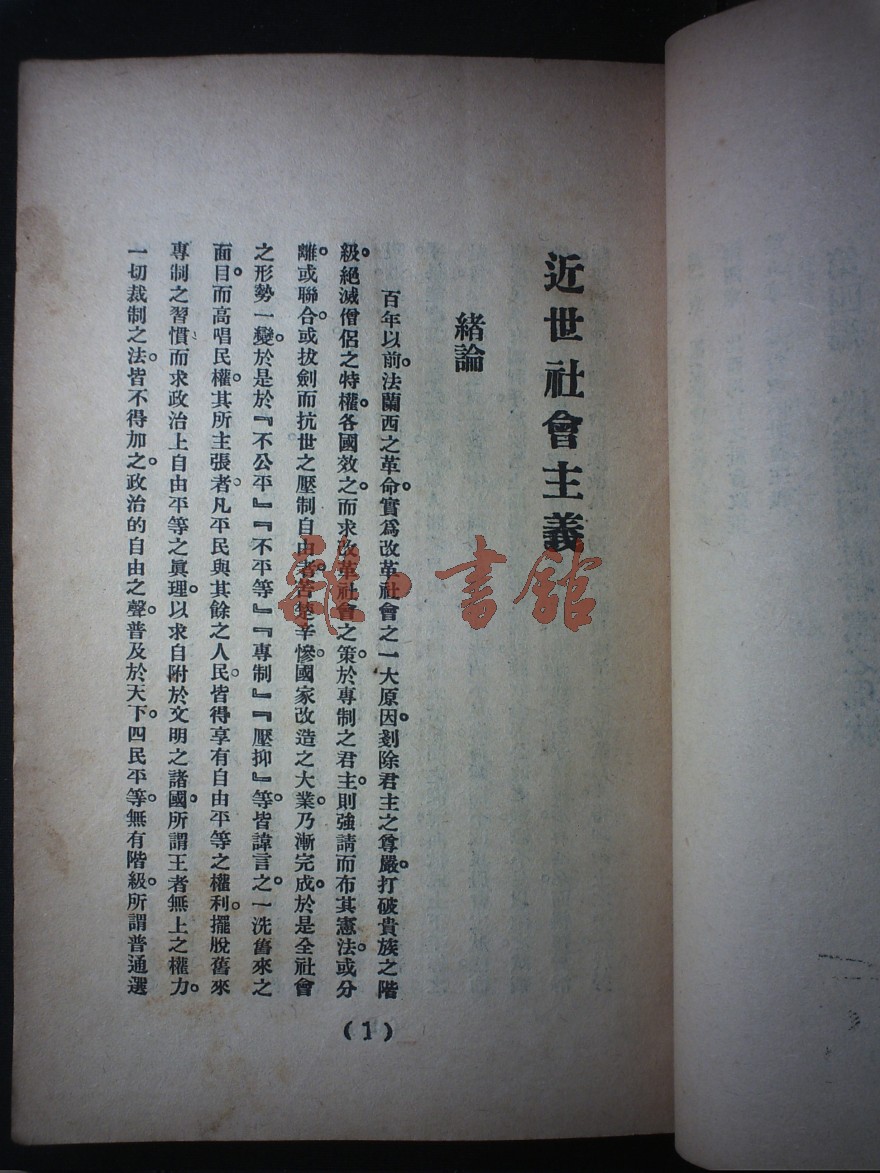 近世社會主義
緒論
百年以前。法蘭西之革命。實爲改革社會之一大原因。剗除君主之尊嚴。打破貴族之階
級。絕滅僧侶之特權。各國效之。而求改革社會之策。於專制之君主。則強請而布其憲法。或分
離。或聯合。或拔劍而抗世之壓制自由者。苦楚辛慘。國家改造之大業。乃漸完成。於是全社會
之形勢一變。於是於『不公平』『不平等』『專制』『壓抑』等。皆諱言之。一洗舊來之
面目。而高唱民權。其所主張者。凡平民與其餘之人民。皆得享有自由平等之權利。擺脫舊來
專制之習慣。而求政治上自由平等之眞理。以求自附於文明之諸國。所謂王者無上之權力。
一切裁制之法。皆不得加之。政治的自由之聲。普及於天下。四民平等。無有階級。所謂普通選
(1)
雜·書館